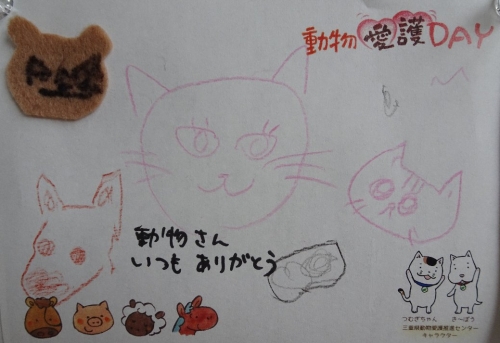 動物愛護DAY
動物さん
いつも ありがとう
つむぎちゃん さーぼう
三重県動物愛護推進センター
キャラクター